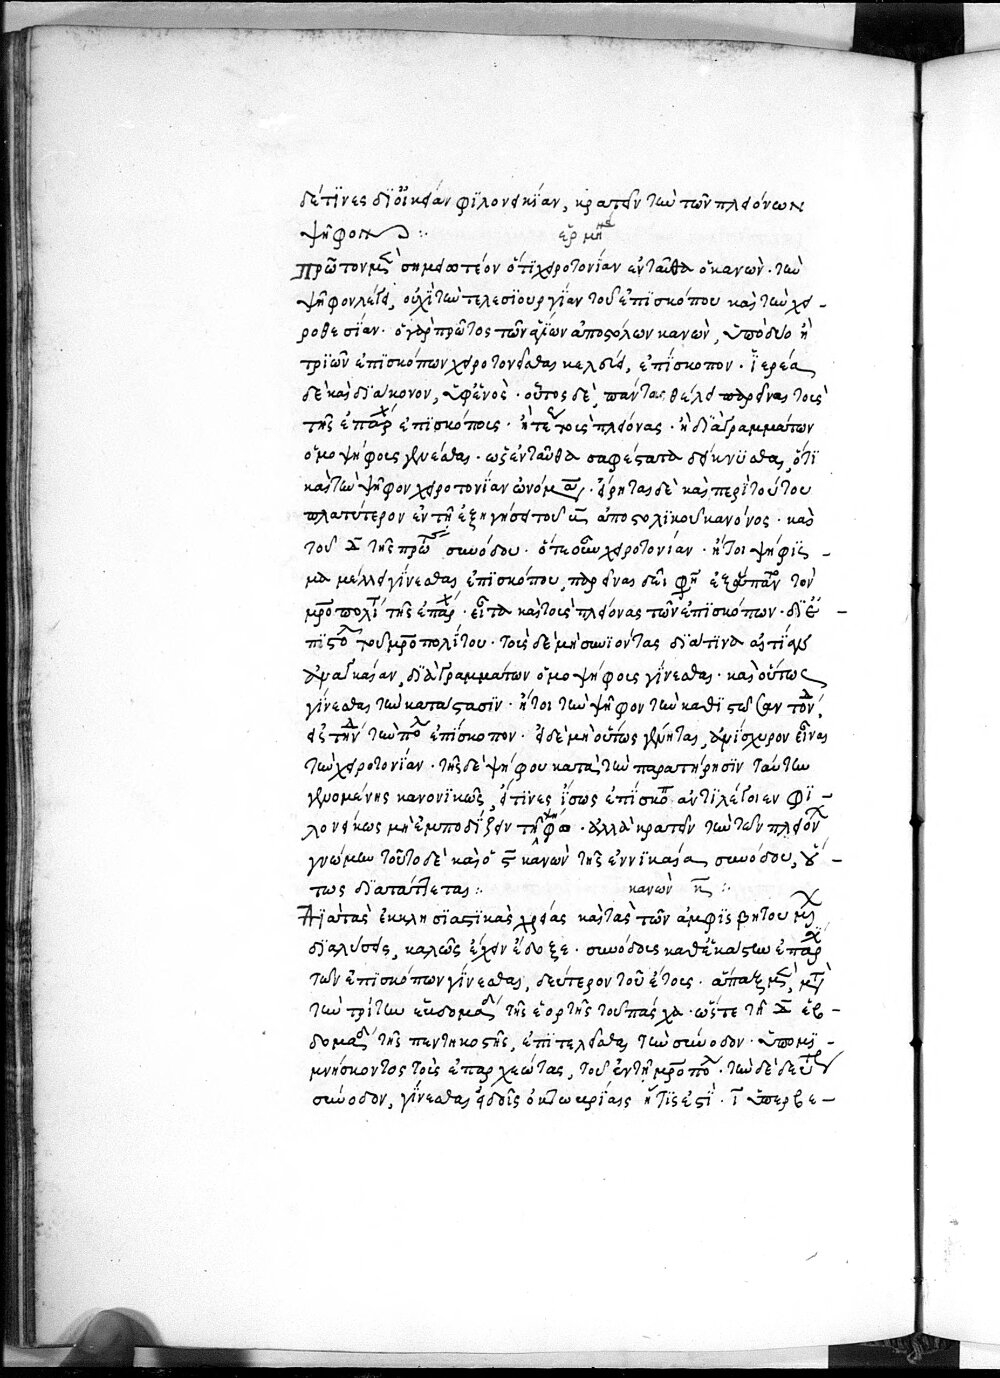 δέ τινες δι οἰκείαν φιλονεικίαν, κρατεῖν τὴν τῶν πλειόνων
ψῆφον :
ἑρμη
Πρῶτον μὲν σημειωτέον ὅτι χειροτονίαν ἐνταῦθα ὁ κανὼν · τὴν
ψῆφον λέγει, οὐχὶ τὴν τελεσιουργίαν τοῦ ἐπισκόπου καὶ τὴν χει-
ροθεσίαν · ὁ γὰρ πρῶτος τῶν ἁγίων ἀποστόλων κανὼν, ὑπὸ δύο ἢ
τριῶν ἐπισκόπων χειροτονεῖσθαι κελεύει, ἐπίσκοπον · ἱερέα
δὲ καὶ διάκονον, ὑφ' ἑνὸς · οὗτος δὲ, πάντας θέλει παρεῖναι τοὺς
τῆς ἐπαρχ ἐπισκόπους · ἤ γε τοὺς πλείονας · ἢ διὰ γραμμάτων
ὁμοψήφους γενέσθαι · ὡς ἐνταῦθα σαφέστατα δείκνυσθαι, ὅτι
καὶ τὴν ψῆφον χειροτονίαν ὠνόμασαν · εἴρηται δὲ καὶ περὶ τούτου
πλατύτερον ἐν τῇ ἐξηγήσει τοῦ α ἀποστολικοῦ κανόνος · καὶ
τοῦ δ τῆς πρώ συνόδου · ὅτε οὖν χειροτονίαν · ἤτοι ψήφισ-
μα μέλλει γίνεσθαι ἐπισκόπου, παρεῖναι δεῖ φη ἐξάπαν τὸν
μροπολι τῆς ἐπαρχ · εἶτα καὶ τοὺς πλείονας τῶν ἐπισκόπων · δι ἐ-
πιστο τοῦ μροπολίτου · τοὺς δὲ μὴ συνιόντας διά τινα αἰτίαν
ἀναγκαίαν, διὰ γραμμάτων ὁμοψήφους γίνεσθαι · καὶ οὕτως
γίνεσθαι τὴν κατάστασιν · ἤτοι τὴν ψῆφον τὴν καθιστῶσαν τόνδ,
εἰς τήνδ τὴν πόλ ἐπίσκοπον · εἰ δὲ μὴ οὕτως γένηται, ἀνίσχυρον εἶναι
τὴν χειροτονίαν · τῆς δὲ ψήφου κατὰ τὴν παρατήρησιν ταύτην
γενομένης κανονικῶς, εἴ τινες ἴσως ἐπίσκοπ ἀντιλέγοιεν φι-
λονείκως μὴ ἐμποδίζειν τῇ ψήφω · ἀλλὰ κρατεῖν τὴν τῶν πλειόν
γνώμην τοῦτο δὲ καὶ ὁ ϛ κανὼν τῆς ἐν νικαία συνόδου, οὕ-
τως διατάττεται :
κανὼν κ :
Διὰ τὰς ἐκκλησιαστικὰς χρείας καὶ τὰς τῶν ἀμφισβητουμ
διαλύσεις, καλῶς ἔχειν ἔδοξε · συνόδους καθ' ἑκάστην ἐπαρχ
τῶν ἐπισκόπων γίνεσθαι, δεύτερον τοῦ ἔτους · ἅπαξ μὲν, μετ
τὴν τρίτην ἑβδομάδ τῆς ἑορτῆς τοῦ πάσχα · ὥστε τῇ δ ἑβ-
δομάδ τῆς πεντηκοστῆς, ἐπιτελεῖσθαι τὴν σύνοδον · ὑπομι-
μνήσκοντος τοὺς ἐπαρχεώτας, τοῦ ἐν τῇ μροπόλ · τὴν δὲ δευτ
σύνοδον, γίνεσθαι εἰδοῖς ὀκτωβρίαις ἥτις ἐστὶ · ι ὑπερβε-